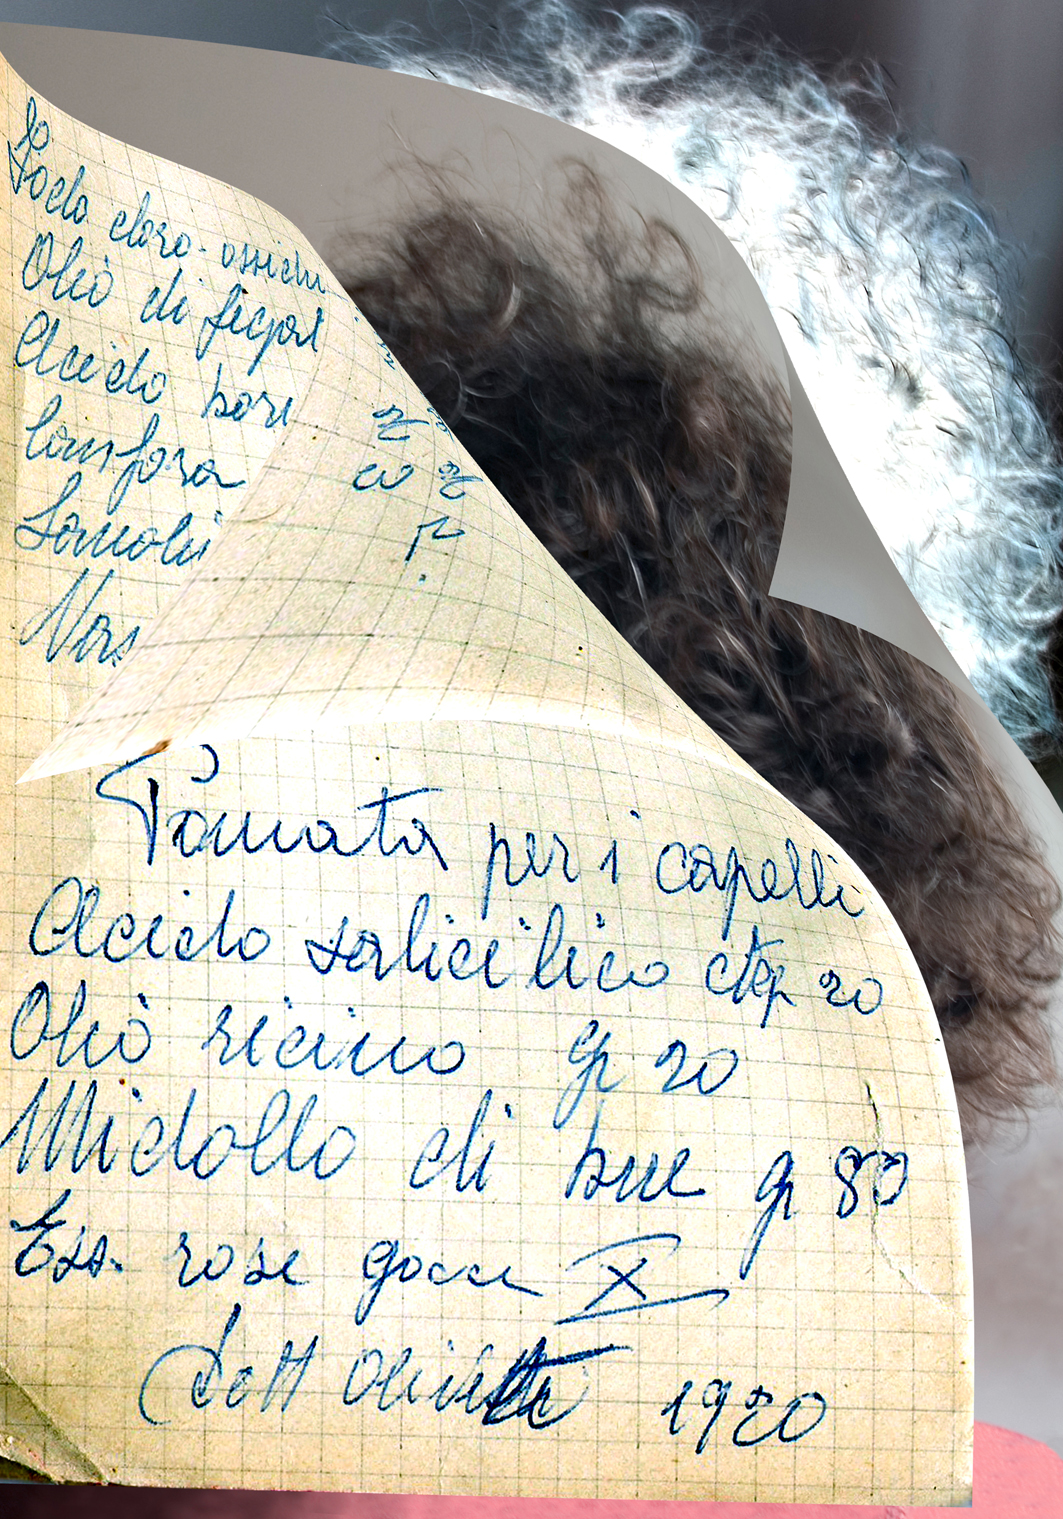 Iodo cloro-ossichi
Olio di fegat
Acido bori
Canfora
Lanolin
Vas
Pomata per i capelli
Acido salicilico ctgr 20
Olio ricino gr 20
Midollo di bue gr 80
Ess. rose gocce X
(Dott Olivetti 1920